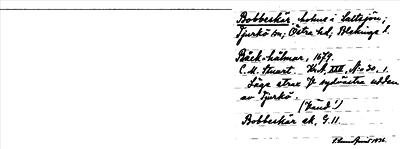 Bobbeskär, holme i Saltsjön;
Tjurkö sn; Östra hd, Blekinge l.
Bäck-hålmar, 1679.
C. M. Stuart. Kr. A. XIII. N:o 30. 1.
Låga strax V sydvästra udden
av Tjurkö.
(Känd!)
Bobbeskär ek. G. 11.
1936.